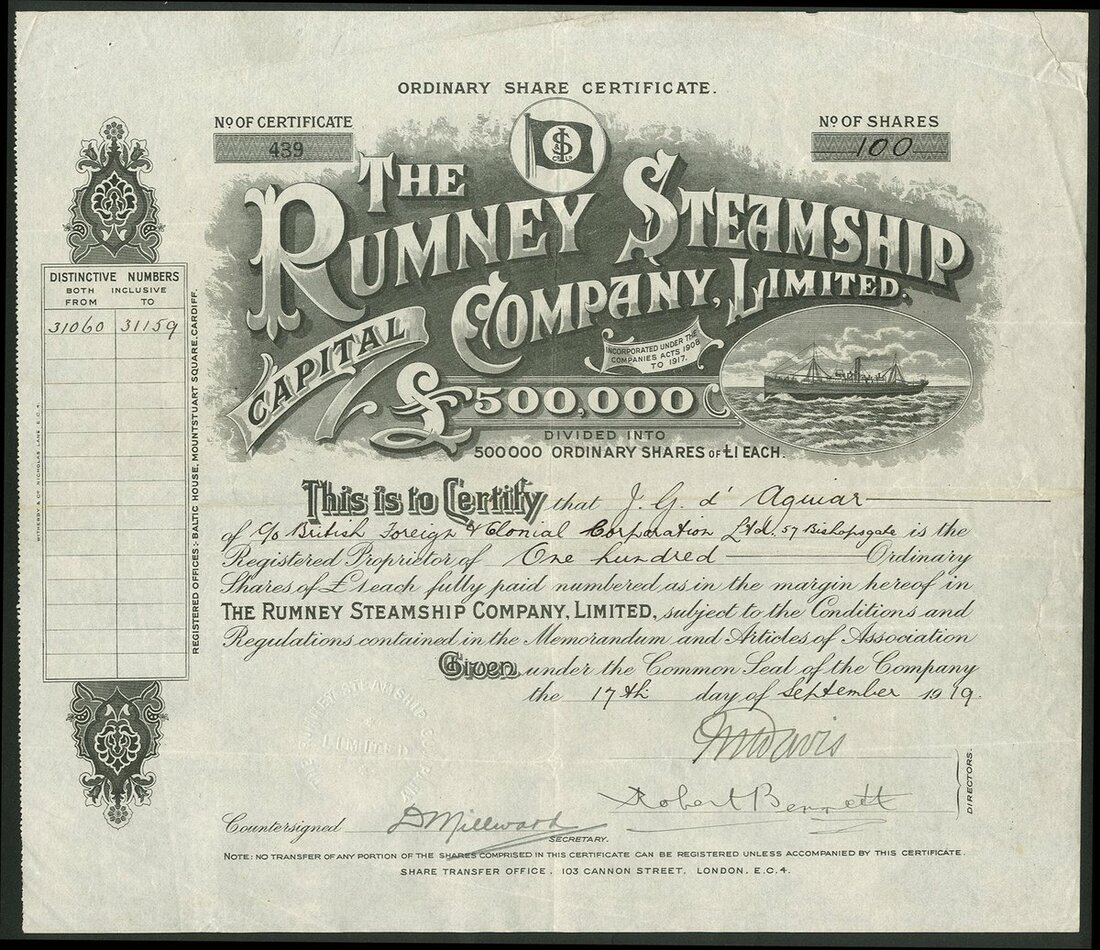 ORDINARY SHARE CERTIFICATE.
No OF CERTIFICATE
439
No OF SHARES
100
THE
RUMNEY STEAMSHIP
COMPANY, LIMITED.
CAPITAL
£500,000
INCORPORATED UNDER THE
COMPANIES ACTS 1908
TO 1917.
DIVIDED INTO
500000 ORDINARY SHARES OF £1 EACH.
DISTINCTIVE NUMBERS
BOTH INCLUSIVE
FROM TO
31060 31159
WITHERBY & CO NICHOLAS LANE. E.C.4.
REGISTERED OFFICES:- BALTIC HOUSE, MOUNTSTUART SQUARE, CARDIFF.
This is to Certify that J. G. d' Aguiar
of c/o British Foreign & Colonial Corporation Ltd. 57 Bishopsgate is the
Registered Proprietor of One hundred Ordinary
Shares of £1 each fully paid numbered as in the margin hereof in
THE RUMNEY STEAMSHIP COMPANY, LIMITED, subject to the Conditions and
Regulations contained in the Memorandum and Articles of Association
Given under the Common Seal of the Company
the 17th day of September 1919.
THE RUMNEY STEAMSHIP COMPANY
LIMITED
Davis
Robert Bennett
DIRECTORS.
Countersigned D Millward
SECRETARY.
NOTE: NO TRANSFER OF ANY PORTION OF THE SHARES COMPRISED IN THIS CERTIFICATE CAN BE REGISTERED UNLESS ACCOMPANIED BY THIS CERTIFICATE.
SHARE TRANSFER OFFICE. 103 CANNON STREET, LONDON. E.C.4.